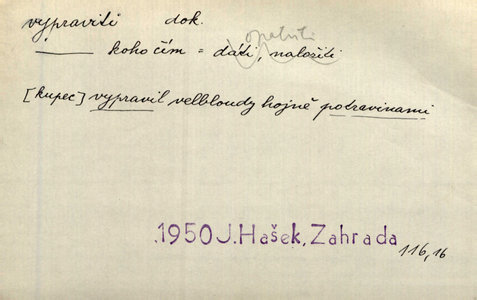 vypraviti dok.
opatřiti
——— koho čím = dáti, naložiti
[kupec] vypravil velbloudy hojně potravinami
1950 J. Hašek, Zahrada 116,16